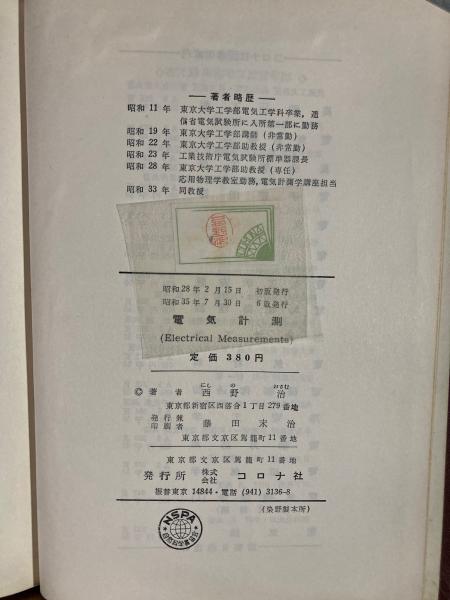 ― 著者略歴 ―
昭和 11 年 東京大学工学部電気工学科卒業，逓
信省電気試験所に入所第一部に勤務
昭和 19 年 東京大学工学部講師 (非常勤)
昭和 22 年 東京大学工学部助教授 (非常勤)
昭和 23 年 工業技術庁電気試験所標準器課長
昭和 28 年 東京大学工学部助教授 (専任)
応用物理学教室勤務，電気計測学講座担当
昭和 33 年 同教授
昭和28年 2 月 15日 初版発行
昭和35年 7 月 30日 6版発行
電気計測
(Electrical Measurements)
定価 380円
にし の おさむ
© 著 者 西野 治
東京都新宿区西落合1丁目279番地
発行兼
印刷者 藤田末治
東京都文京区駕籠町11番地
東京都文京区駕籠町11番地
発行所 株式会社 コロナ社
振替東京 14844・電話 (941) 3136-8
(染野製本所)
NSPA